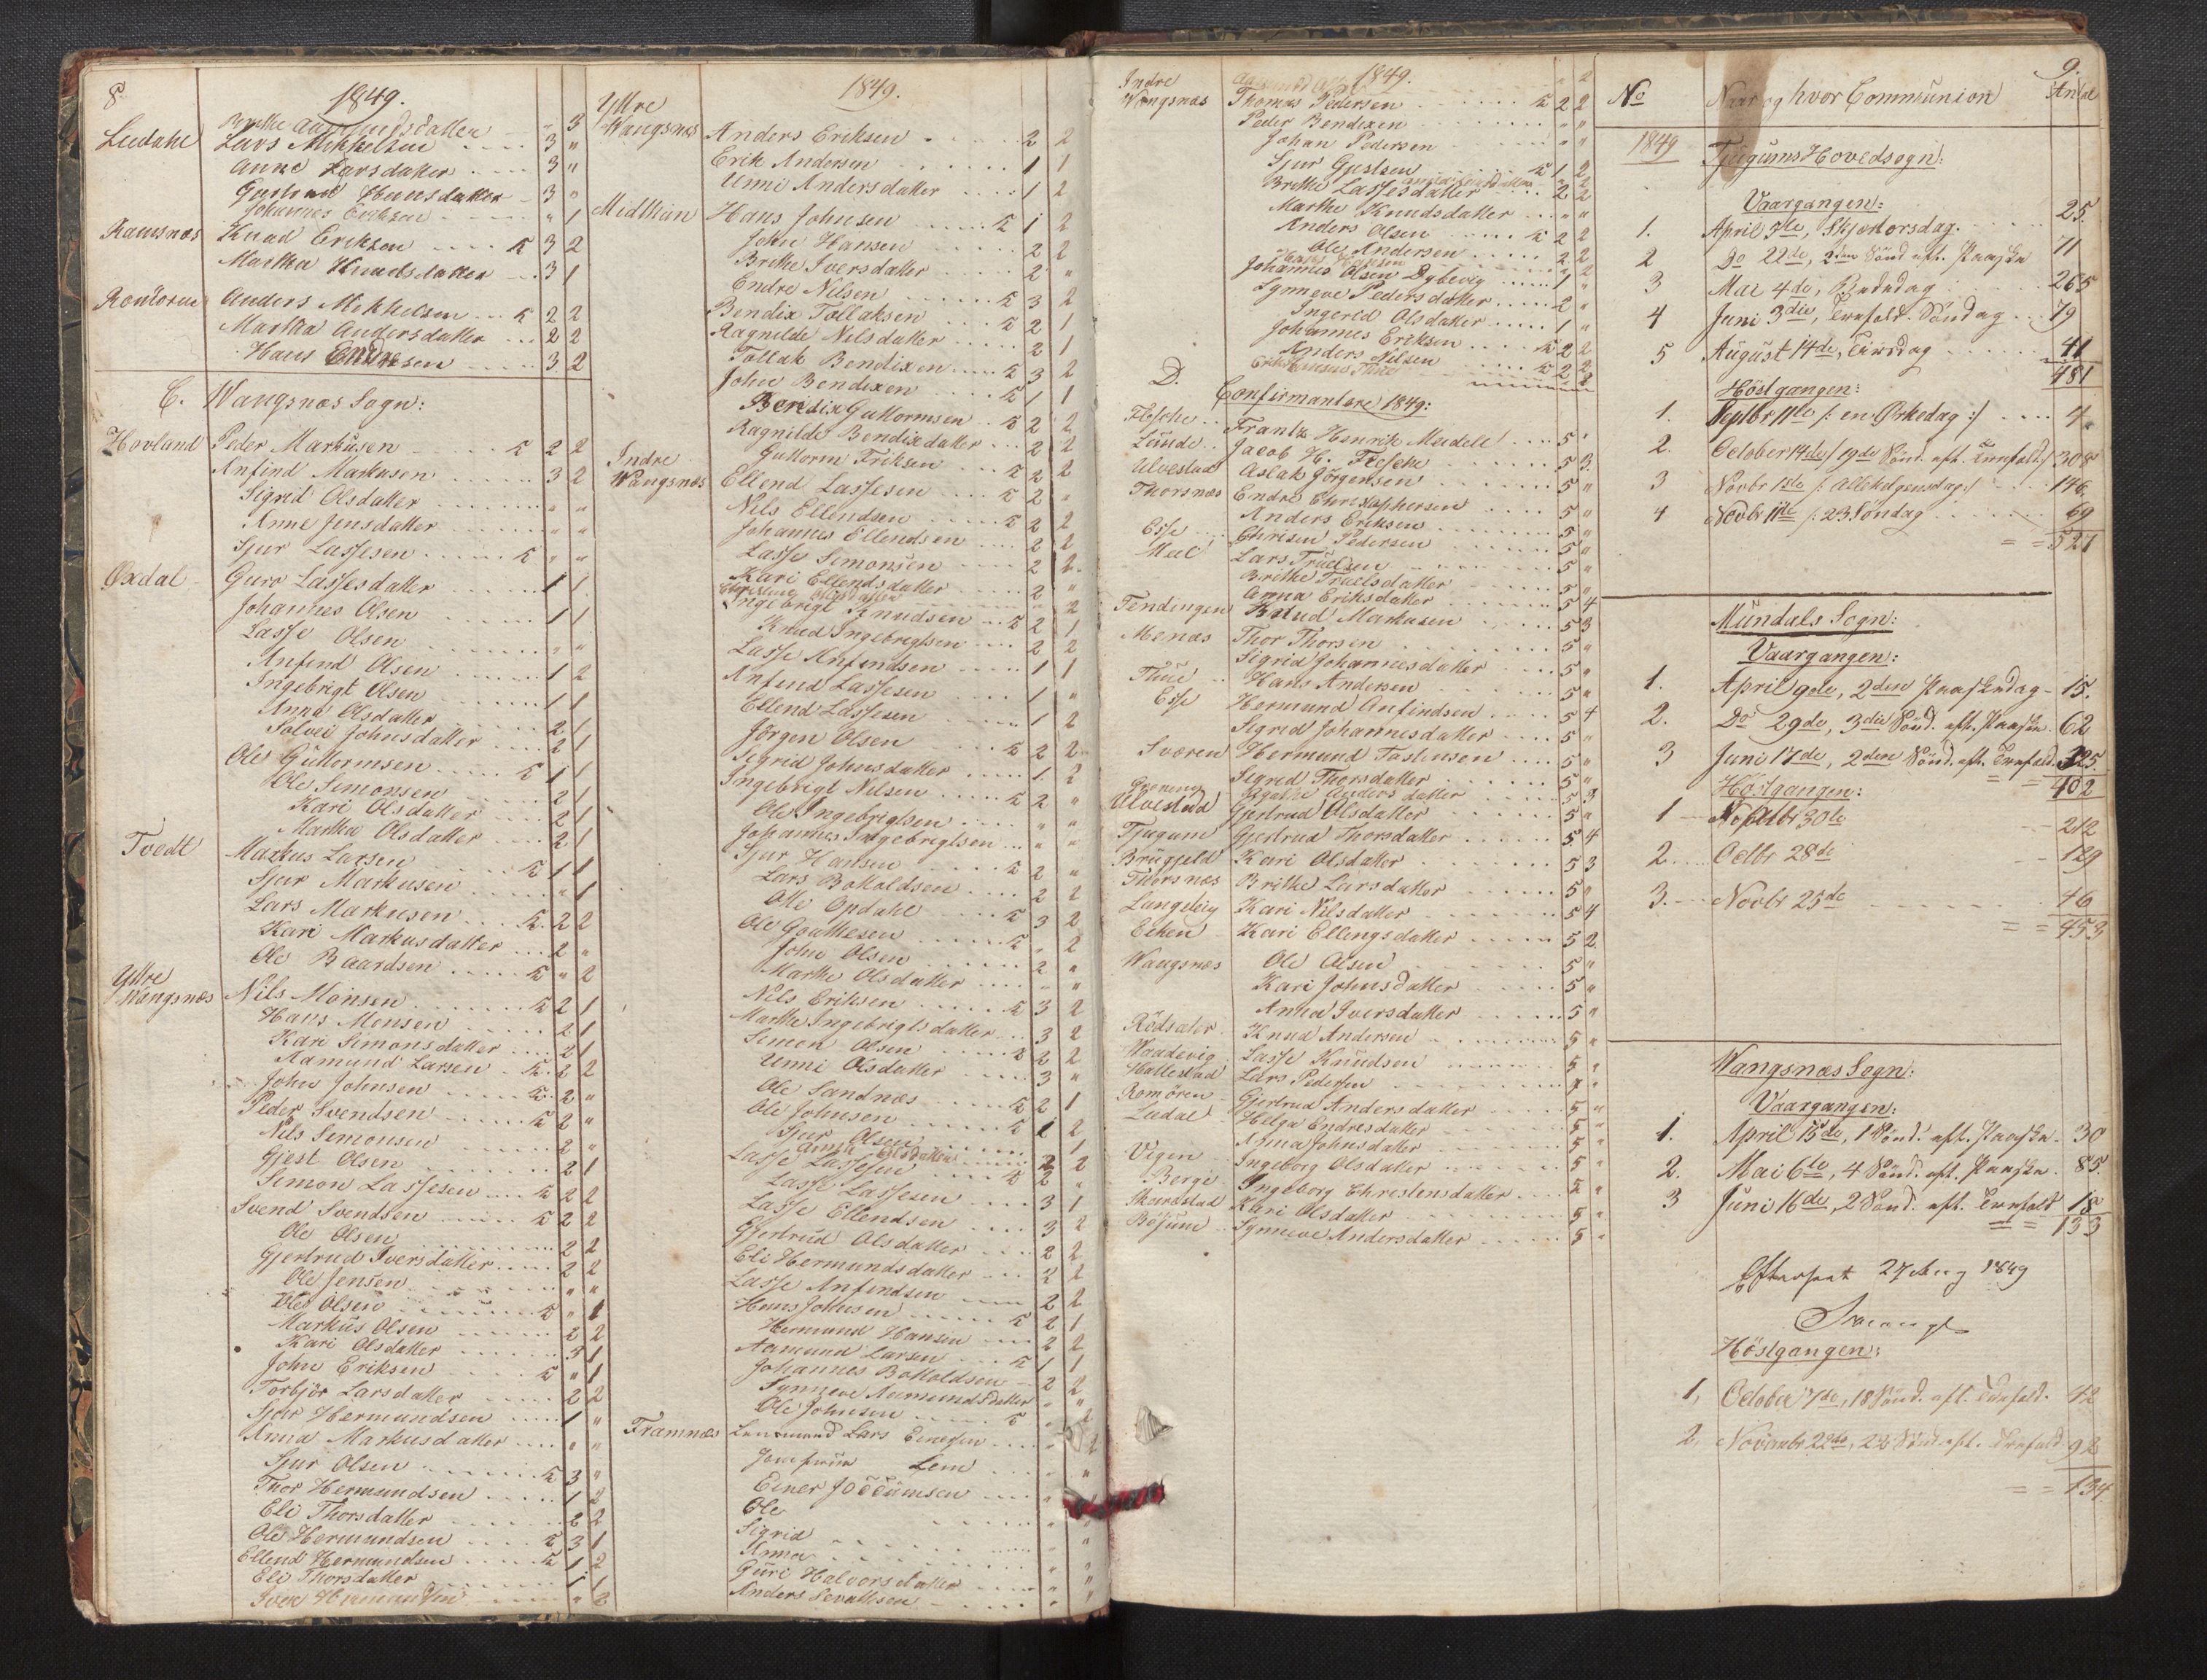 8
1849.
Leedahl Brithe Aamundsdatter " 3
Lars Mikkelsen 3 "
Anne Larsdatter 3 "
Gertrud Hansdatter 3 "
Johannes Eriksen " 1
Ramsnæs Knud Eriksen K 3 2
Martha Knudsdatter 3 1
Romören Anders Mikkelsen K 2 2
Martha Andersdatter 2 2
Hans Endresen 3 2
C. Wangsnæs Sogn:
Hovland Peder Markusen K 2 2
Anfind Markusen 3 2
Sigrid Olsdatter " "
Anne Jensdatter " "
Sjur Lassesen K " "
Oxedal Guro Lassesdatter 1 1
Johannes Olsen 1 1
Lasse Olsen " "
Anfind Olsen 1 2
Ingebrigt Olsen 1 1
Anna Olsdatter 2 1
Solvei Johnsdatter 2 1
Ole Guttormsen K 1 1
Ole Simonsen 2 1
Kari Olsdatter 2 1
Martha Olsdatter 2 1
Tvedt Markus Larsen K 1 1
Sjur Markusen " 1
Lars Markusen K 2 2
Kari Markusdatter 2 "
Ole Baardsen K " 2
Yttre
Wangsnæs Nils Monsen K 2 1
Hans Monsen 2 1
Kari Simonsdatter 2 1
Aamund Larsen K 2 2
John Johnsen K 2 "
Peder Svendsen K 2 "
Nils Simonsen 2 "
Gjest Olsen 2 1
Simon Lassesen K 2 2
Svend Svendsen K 2 2
Ole Olsen 2 2
Gjertrud Iversdatter 2 2
Ole Jensen " "
Ole Olsen K " 1
Markus Olsen 2 2
Kari Olsdatter 3 1
John Eriksen K " 1
Torbjör Larsdatter 2 2
Sjur Hermundsen 1 "
Anna Markusdatter " "
Sjur Olsen K 3 "
Thor Hermundsen 1 2
Eli Thorsdatter 2 2
Ole Hermundsen K 3 1
Ellend Hermundsen K 1 2
Eli Thorsdatter 1 1
Iver Hermundsen " 2
1849.
Yttre
Wangsnæs Anders Eriksen 2 2
Erik Andersen 1 1
Unni Andersdatter 1 2
Midtlian Hans Johnsen K 1 2
John Hansen 2 2
Brithe Iversdatter 2 "
Endre Nilsen K 3 2
Bendix Tollaksen K 2 1
Ragnilde Nilsdatter 2 1
Tollak Bendixen K 3 2
John Bendixen K 1 1
Bendix Guttormsen K 2 2
Ragnilde Bendixdatter 2 2
Guttorm Eriksen K 2 2
Indre
Wangsnæs Ellend Lassesen K 2 "
Nils Ellendsen K 2 2
Johannes Ellendsen 2 2
Lasse Simonsen 2 2
Kari Ellendsdatter 2 "
Christine Olsdatter " 2
Ingebrigt Knudsen K 2 1
Knud Ingebrigtsen 2 2
Lasse Anfindsen 1 1
Anfind Lassesen 1 "
Ellend Lassesen 1 2
Jörgen Olsen K 2 2
Sigrid Johnsdatter 1 2
Ingebrigt Nilsen K 2 "
Ole Ingebrigtsen " "
Johannes Ingebrigtsen " "
Sjur Hansen K 2 "
Lars Botholdsen 2 2
Ole Opdahl K 3 2
Ole Gouttesen K " 2
John Olsen 2 "
Marthe Olsdatter " "
Nils Eriksen K 3 2
Marthe Ingebrigtsdatter 3 2
Simon Olsen K 2 2
Unni Olsdatter 3 "
Ole Sandnæs K 2 1
Ole Johnsen K 1 2
Sjur Olsen " 1
Anna Olsdatter 2 2
Lasse Lassesen K 2 "
Lasse Lassesen 3 1
Lasse Ellendsen 3 2
Gjertrud Olsdatter 2 2
Eli Hermundsdatter 2 2
Lasse Anfindsen 2 2
Hans Johnsen K 2 1
Hermund Hansen 2 2
Aamund Larsen K 1 1
Johannes Botholdsen 2 2
Synneve Aamundsdatter " "
Ole Johnsen K " 2
Framnæs Lensmand Lars Einersen
Jomfrue Lem
Einer Joccumsen
Ole
Sigrid
Anna
Guri Halvorsdatter
Anders Sevattsen
1849.
Indre
Wangsnæs Thomas Pedersen K 2 2
Peder Bendixen " "
Johan Pedersen " "
Sjur Gjestsen K 1 2
Brithe Lassesdatter 2 2
Marthe Knudsdatter " "
Anders Olsen K 2 2
Ole Andersen 2 2
Johannes Olsen Dybevig 1 "
Synneve Pedersdatter 2 "
Ingerid Olsdatter 1 "
Johannes Eriksen K 2 2
Anders Nilsen K 2 2
D. Confirmantere 1849:
Flesche Frantz Henrik Meidell 5 "
Lunde Jacob H. Flesche 5 3
Ulvestad Aslak Jörgensen 5 "
Thorsnæs Endre Christophersen 5 "
Anders Eriksen 5 "
Esse Christen Pedersen 5 "
Meel Lars Truelsen 5 "
Brithe Truelsdatter 5 "
Anna Eriksdatter 5 4
Tendingen Knud Markusen 5 3
Menæs Thor Thorsen 5 "
Sigrid Johannesdatter 5 "
Thue Hans Andersen 5 "
Esse Hermund Anfindsen 5 4
Sigrid Johannesdatter 5 "
Sværen Hermund Tostensen 5 "
Sigrid Thorsdatter 5 "
Grøneng Agathe Andersdatter 5 3
Ulvestad Gjertrud Olsdatter 5 "
Tjugum Gjertrud Thorsdatter 5 4
Brügjeld Kari Olsdatter 5 3
Thorsnæs Brithe Larsdatter 5 "
Langeteig Kari Nilsdatter 5 4
Eihen Kari Ellingsdatter 5 2
Wangsnæs Ole Olsen 5 "
Kari Johnsdatter 5 "
Anna Iversdatter 5 "
Rödsæter Knud Andersen 5 "
Waadevig Lasse Knudsen 5 "
Hallestad Lars Pedersen " "
Romören Gjertrud Andersdatter 5 "
Leedal Helga Endresdatter 5 "
Anna Johnsdatter 5 "
Vigen Ingeborg Olsdatter 5 "
Berge Ingeborg Christensdatter 5 "
Skardstad Kari Olsdatter 5 "
Bösum Synneve Andersdatter 5 "
9.
No Naar og hvor Communion Antal
1849 Tjugums Hovedsogn:
Vaargangen:
1. April 5te, Skjærtorsdag. 25.
2 Do 22de, 2den Sönd. eft. Paaske 71
3 Mai 4de, Bededag 265
4 Juni 3die, Trefold. Söndag 79
5 August 14de, Tirsdag 41
481
Höstgangen:
1. Septbr 11te /: en Ørkedag :/ 4.
2. October 14de /: 19de Sönd. eft. Trefold :/ 308
3 Novbr 1ste /: Allehelgensdag :/ 146.
4 Novbr 11te /: 23 Söndag 69
= = 527
Mundals Sogn:
Vaargangen:
1. April 9de, 2den Paaskedag - 15.
2. Do 29de, 3die Sönd. eft. Paaske. 62
3 Juni 17de, 2den Sönd. eft. Trefold. 325
= = 402
Höstgangen:
1 Septbr 30te 212
2. Octbr 28de 129
3. Novbr 25de 46
= = 453
Wangsnæs Sogn:
Vaargangen:
1. April 15de, 1 Sönd. eft. Paaske. 30
2. Mai 6te, 4 Sönd. eft. Paaske. 85.
3 Juni 16de, 2 Sönd. eft. Trefold 18
= = 133
Efterseet 27 Aug 1849
Höstgangen:
1, October 7de, 18 Sönd. eft. Trefold. 42
2, Novembr 22de, 22 Sönd. eft. Trefold 92
= = 134.